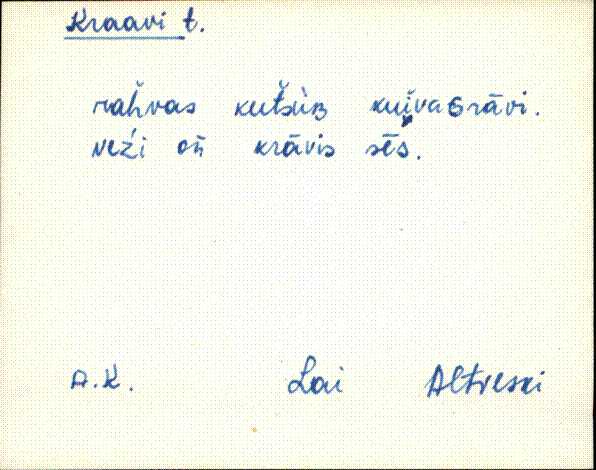 Kraavi t.
rahvas kutsùᴢ kuivaɢrāvi.
veźi oĺi krāvis sēs.
A.K. Lai Altveski